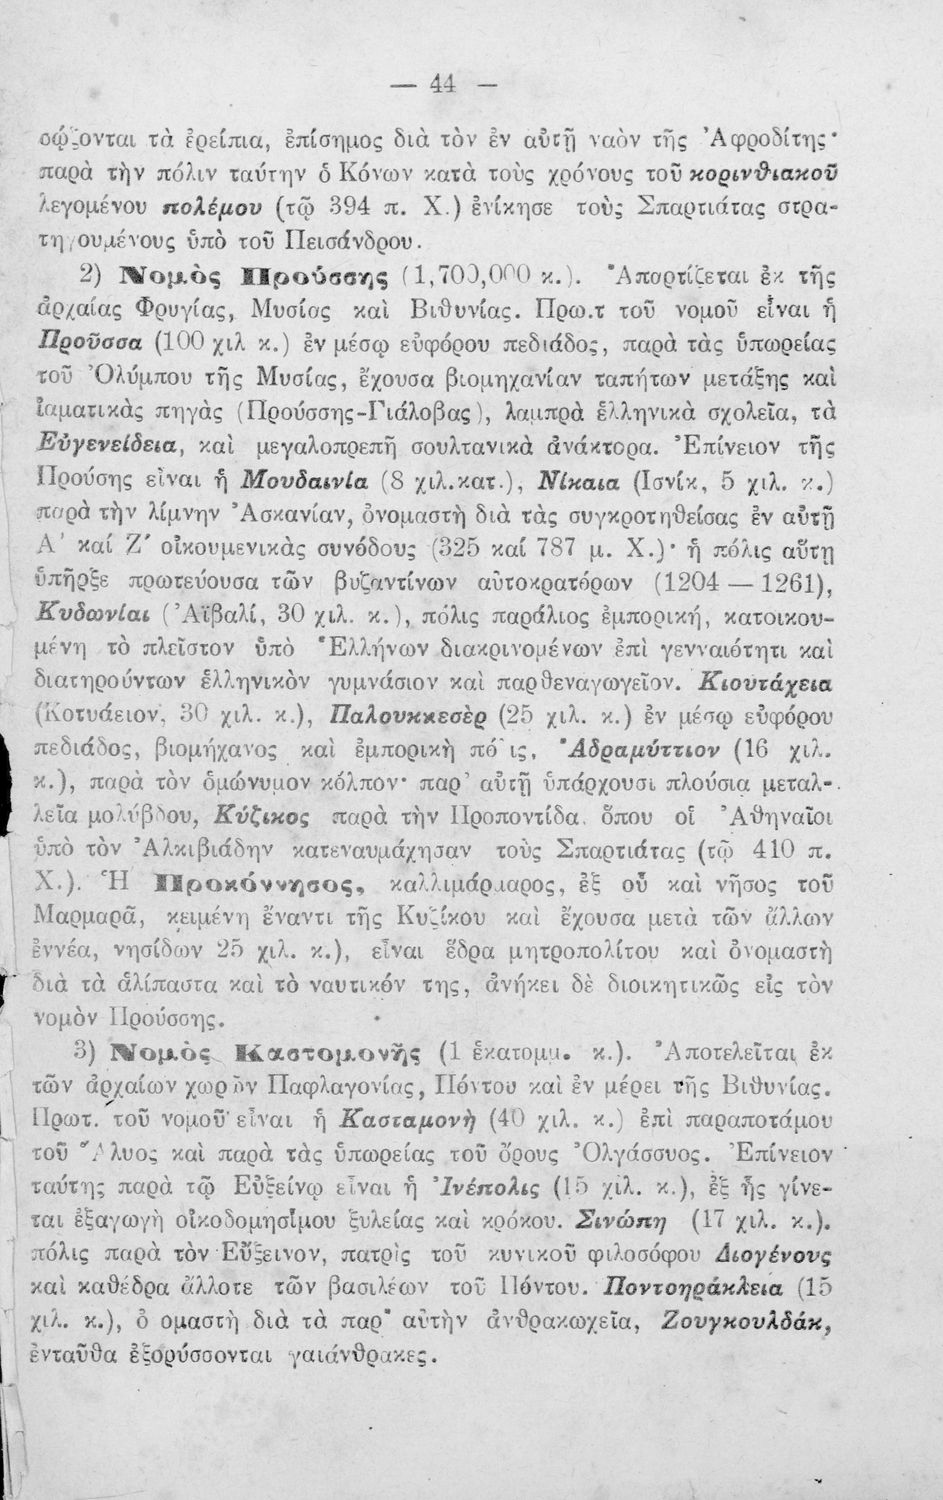 — 44 —
σῴζονται τὰ ἐρείπια, ἐπίσημος διὰ τὸν ἐν αὐτῇ ναὸν τῆς Ἀφροδίτης·
παρὰ τὴν πόλιν ταύτην ὁ Κόνων κατὰ τοὺς χρόνους τοῦ κορινθιακοῦ
λεγομένου πολέμου (τῷ 394 π. Χ.) ἐνίκησε τοὺς Σπαρτιάτας στρα-
τηγουμένους ὑπὸ τοῦ Πεισάνδρου.
2) Νομὸς Προύσσης (1,700,000 κ.). Ἀπαρτίζεται ἐκ τῆς
ἀρχαίας Φρυγίας, Μυσίας καὶ Βιθυνίας. Πρω.τ τοῦ νομοῦ εἶναι ἡ
Προῦσσα (100 χιλ κ.) ἐν μέσῳ εὐφόρου πεδιάδος, παρὰ τὰς ὑπωρείας
τοῦ Ὀλύμπου τῆς Μυσίας, ἔχουσα βιομηχανίαν ταπήτων μετάξης καὶ
ἰαματικὰς πηγὰς (Προύσσης-Γιάλοβας), λαμπρὰ ἑλληνικὰ σχολεῖα, τὰ
Εὐγενείδεια, καὶ μεγαλοπρεπῆ σουλτανικὰ ἀνάκτορα. Ἐπίνειον τῆς
Προύσης εἶναι ἡ Μουδαινία (8 χιλ.κατ.), Νίκαια (Ισνίκ, 5 χιλ. κ.)
παρὰ τὴν λίμνην Ἀσκανίαν, ὀνομαστὴ διὰ τὰς συγκροτηθείσας ἐν αὐτῇ
Α' καί Ζ' οἰκουμενικὰς συνόδους (325 καί 787 μ. Χ.)· ἡ πόλις αὕτη
ὑπῆρξε πρωτεύουσα τῶν βυζαντίνων αὐτοκρατόρων (1204 — 1261),
Κυδωνίαι (Ἀϊβαλί, 30 χιλ. κ.), πόλις παράλιος ἐμπορική, κατοικου-
μένη τὸ πλεῖστον ὑπὸ Ἑλλήνων διακρινομένων ἐπὶ γενναιότητι καὶ
διατηρούντων ἑλληνικὸν γυμνάσιον καὶ παρθεναγωγεῖον. Κιουτάχεια
(Κοτυάειον, 30 χιλ. κ.), Παλουκκεσὲρ (25 χιλ. κ.) ἐν μέσῳ εὐφόρου
πεδιάδος, βιομήχανος καὶ ἐμπορικὴ πόλις, Ἀδραμύττιον (16 χιλ.
κ.), παρὰ τὸν ὁμώνυμον κόλπον· παρ' αὐτῇ ὑπάρχουσι πλούσια μεταλ-
λεῖα μολύβδου, Κύζικος παρὰ τὴν Προποντίδα, ὅπου οἱ Ἀθηναῖοι
ὑπὸ τὸν Ἀλκιβιάδην κατεναυμάχησαν τοὺς Σπαρτιάτας (τῷ 410 π.
Χ.). Ἡ Προκόννησος, καλλιμάρμαρος, ἐξ οὗ καὶ νῆσος τοῦ
Μαρμαρᾶ, κειμένη ἔναντι τῆς Κυζίκου καὶ ἔχουσα μετὰ τῶν ἄλλων
ἐννέα, νησίδων 25 χιλ. κ.), εἶναι ἕδρα μητροπολίτου καὶ ὀνομαστὴ
διὰ τὰ ἁλίπαστα καὶ τὸ ναυτικόν της, ἀνήκει δὲ διοικητικῶς εἰς τὸν
νομὸν Προύσσης.
3) Νομὸς Καστομονῆς (1 ἑκατομμ. κ.). Ἀποτελεῖται ἐκ
τῶν ἀρχαίων χωρῶν Παφλαγονίας, Πόντου καὶ ἐν μέρει τῆς Βιθυνίας.
Πρωτ. τοῦ νομοῦ εἶναι ἡ Κασταμονὴ (40 χιλ. κ.) ἐπὶ παραποτάμου
τοῦ Ἅλυος καὶ παρὰ τὰς ὑπωρείας τοῦ ὄρους Ὀλγάσσυος. Ἐπίνειον
ταύτης παρὰ τῷ Εὐξείνῳ εἶναι ἡ Ἰνέπολις (15 χιλ. κ.), ἐξ ἧς γίνε-
ται ἐξαγωγὴ οἰκοδομησίμου ξυλείας καὶ κρόκου. Σινώπη (17 χιλ. κ.).
πόλις παρὰ τὸν Εὔξεινον, πατρὶς τοῦ κυνικοῦ φιλοσόφου Διογένους
καὶ καθέδρα ἄλλοτε τῶν βασιλέων τοῦ Πόντου. Ποντοηράκλεια (15
χιλ. κ.), ὀνομαστὴ διὰ τὰ παρ' αὐτὴν ἀνθρακωχεῖα, Ζουγκουλδάκ,
ἐνταῦθα ἐξορύσσονται γαιάνθρακες.